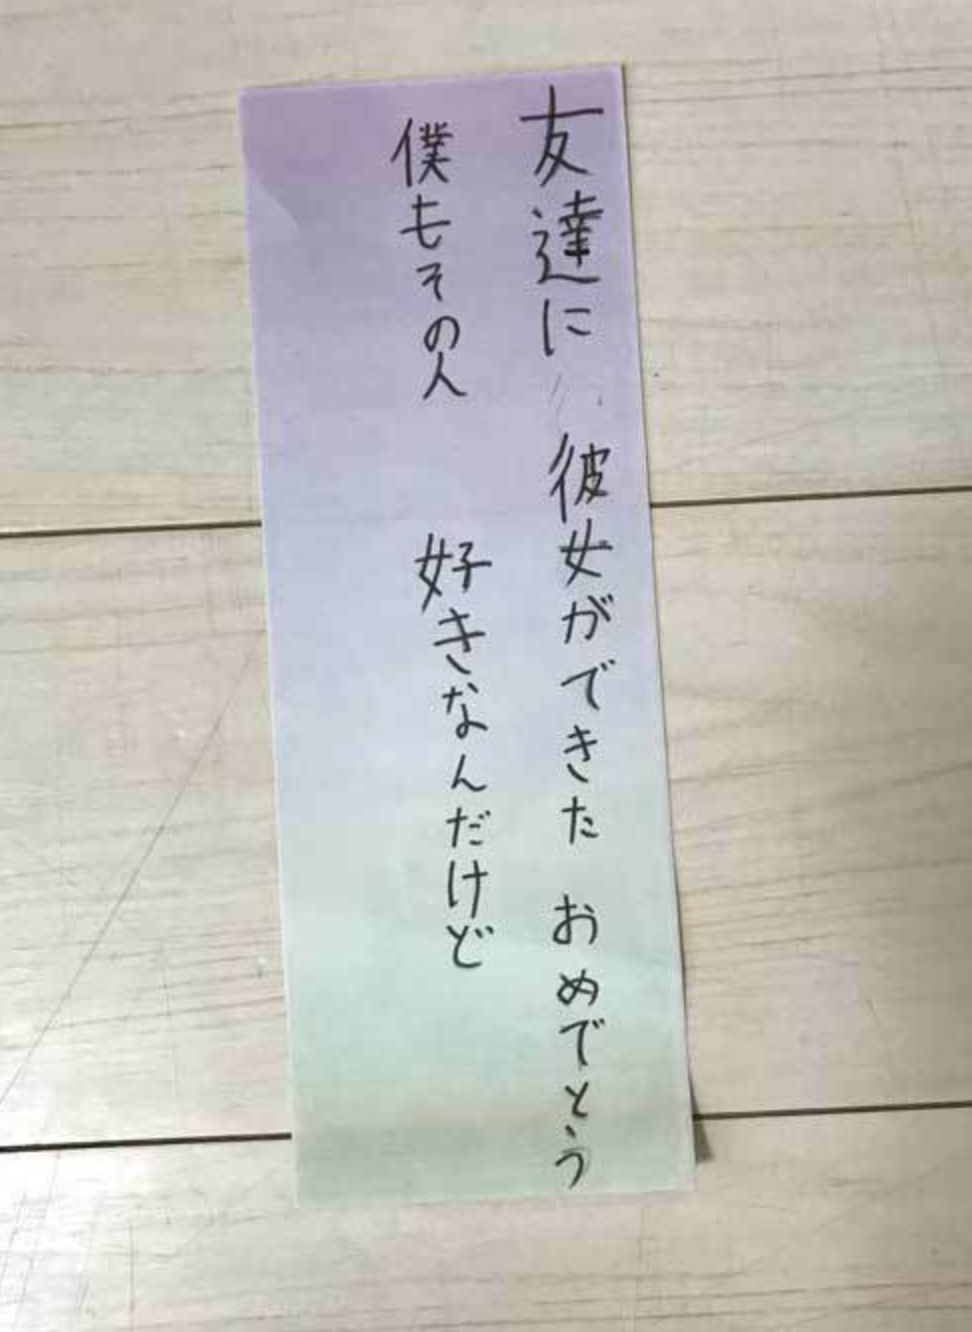 友達に 彼女ができた おめでとう
僕もその人 好きなんだけど